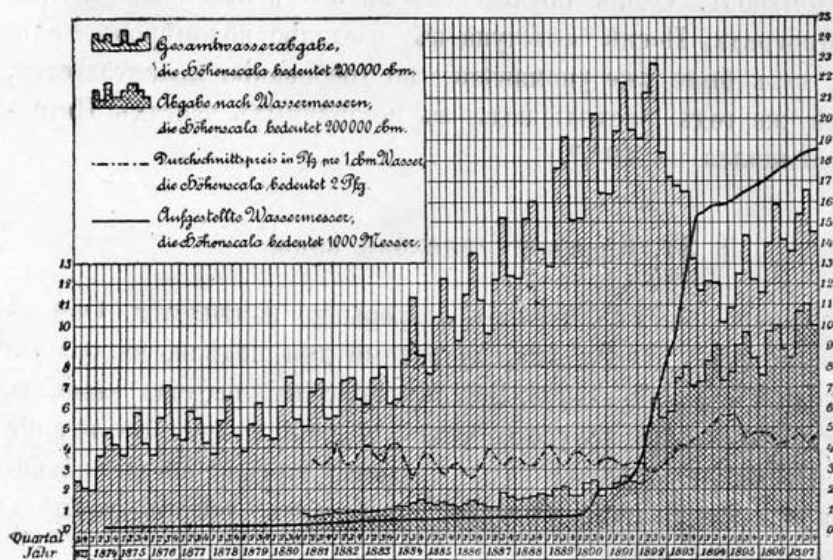 Gesamtwasserabgabe,
die Höhenscala bedeutet 200 000 cbm.
Abgabe nach Wassermessern,
die Höhenscala bedeutet 200 000 cbm.
Durchschnittspreis in Pfg pro 1 cbm Wasser,
die Höhenscala bedeutet 2 Pfg.
Aufgestellte Wassermesser,
die Höhenscala bedeutet 1000 Messer.
25
24
23
22
21
20
19
18
17
16
15
14
13 13
12 12
11 11
10 10
9 9
8 8
7 7
6 6
5 5
4 4
3 3
2 2
1 1
0 0
Quartal
Jahr 1874 1875 1876 1877 1878 1879 1880 1881 1882 1883 1884 1885 1886 1887 1888 1889 1890 1891 1892 1893 1894 1895 1896 1897